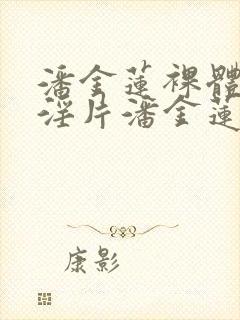 潘金蓮裸體
淫片潘金蓮
康影